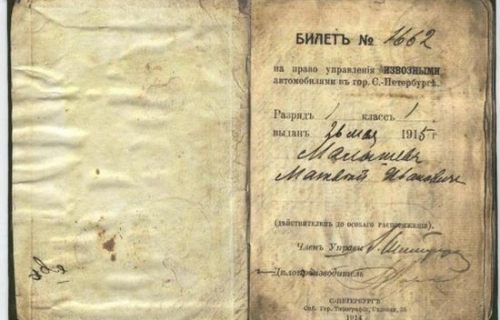 БИЛЕТЪ № 1662
на право управленія ИЗВОЗНЫМИ
автомобилями въ гор. С.-Петербургѣ.
Разрядъ 1 классъ 1
выданъ 26 мая 1915 г
Малышевъ
Матвѣй Ивановичъ
(дѣйствителенъ до особаго распоряженія).
Членъ Управы
Дѣлопроизводитель
С.-ПЕТЕРБУРГЪ
Спб. Гор. Типографія, Садовая, 55
1914